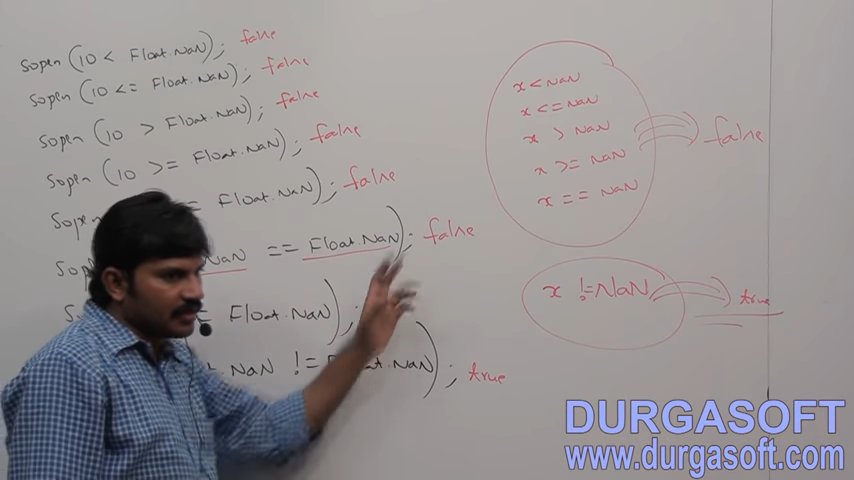 Sopen (10 < Float.NaN); false
Sopen (10 <= Float.NaN); false
Sopen (10 > Float.NaN); false
Sopen (10 >= Float.NaN); false
Sopen = Float.NaN); false
Sop NaN == Float.NaN); false
S Float.NaN);
NaN != Float.NaN); true
x < NaN
x <= NaN
x > NaN
x >= NaN
x == NaN
false
x != NaN
true
DURGASOFT
www.durgasoft.com